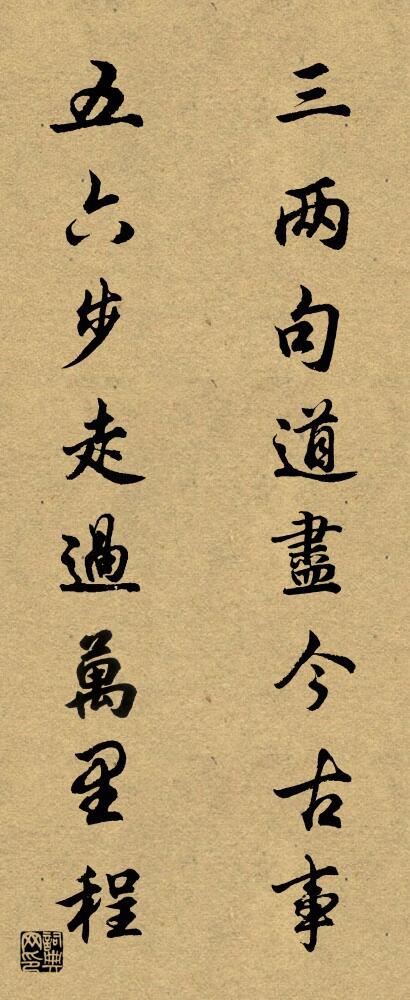 三两句道盡今古事
五六步走過萬里程
詞典网印